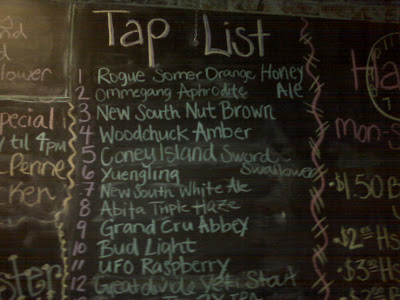 Tap List
1 Rogue Somer Orange Honey
Ale
2 Ommegang Aphrodite
3 New South Nut Brown
4 Woodchuck Amber
5 Coney Island Sword
Swallower
6 Yuengling
7 New South White Ale
8 Abita Triple Haze
9 Grand Cru Abbey
10 Bud Light
11 UFO Raspberry
12 Great divide Yeti Stout
lower
pecial
y til 4pm
Penne
Ken
ster
Ha
mon-S
$1.50 B
$2.00 Hs
$3.00 Hs